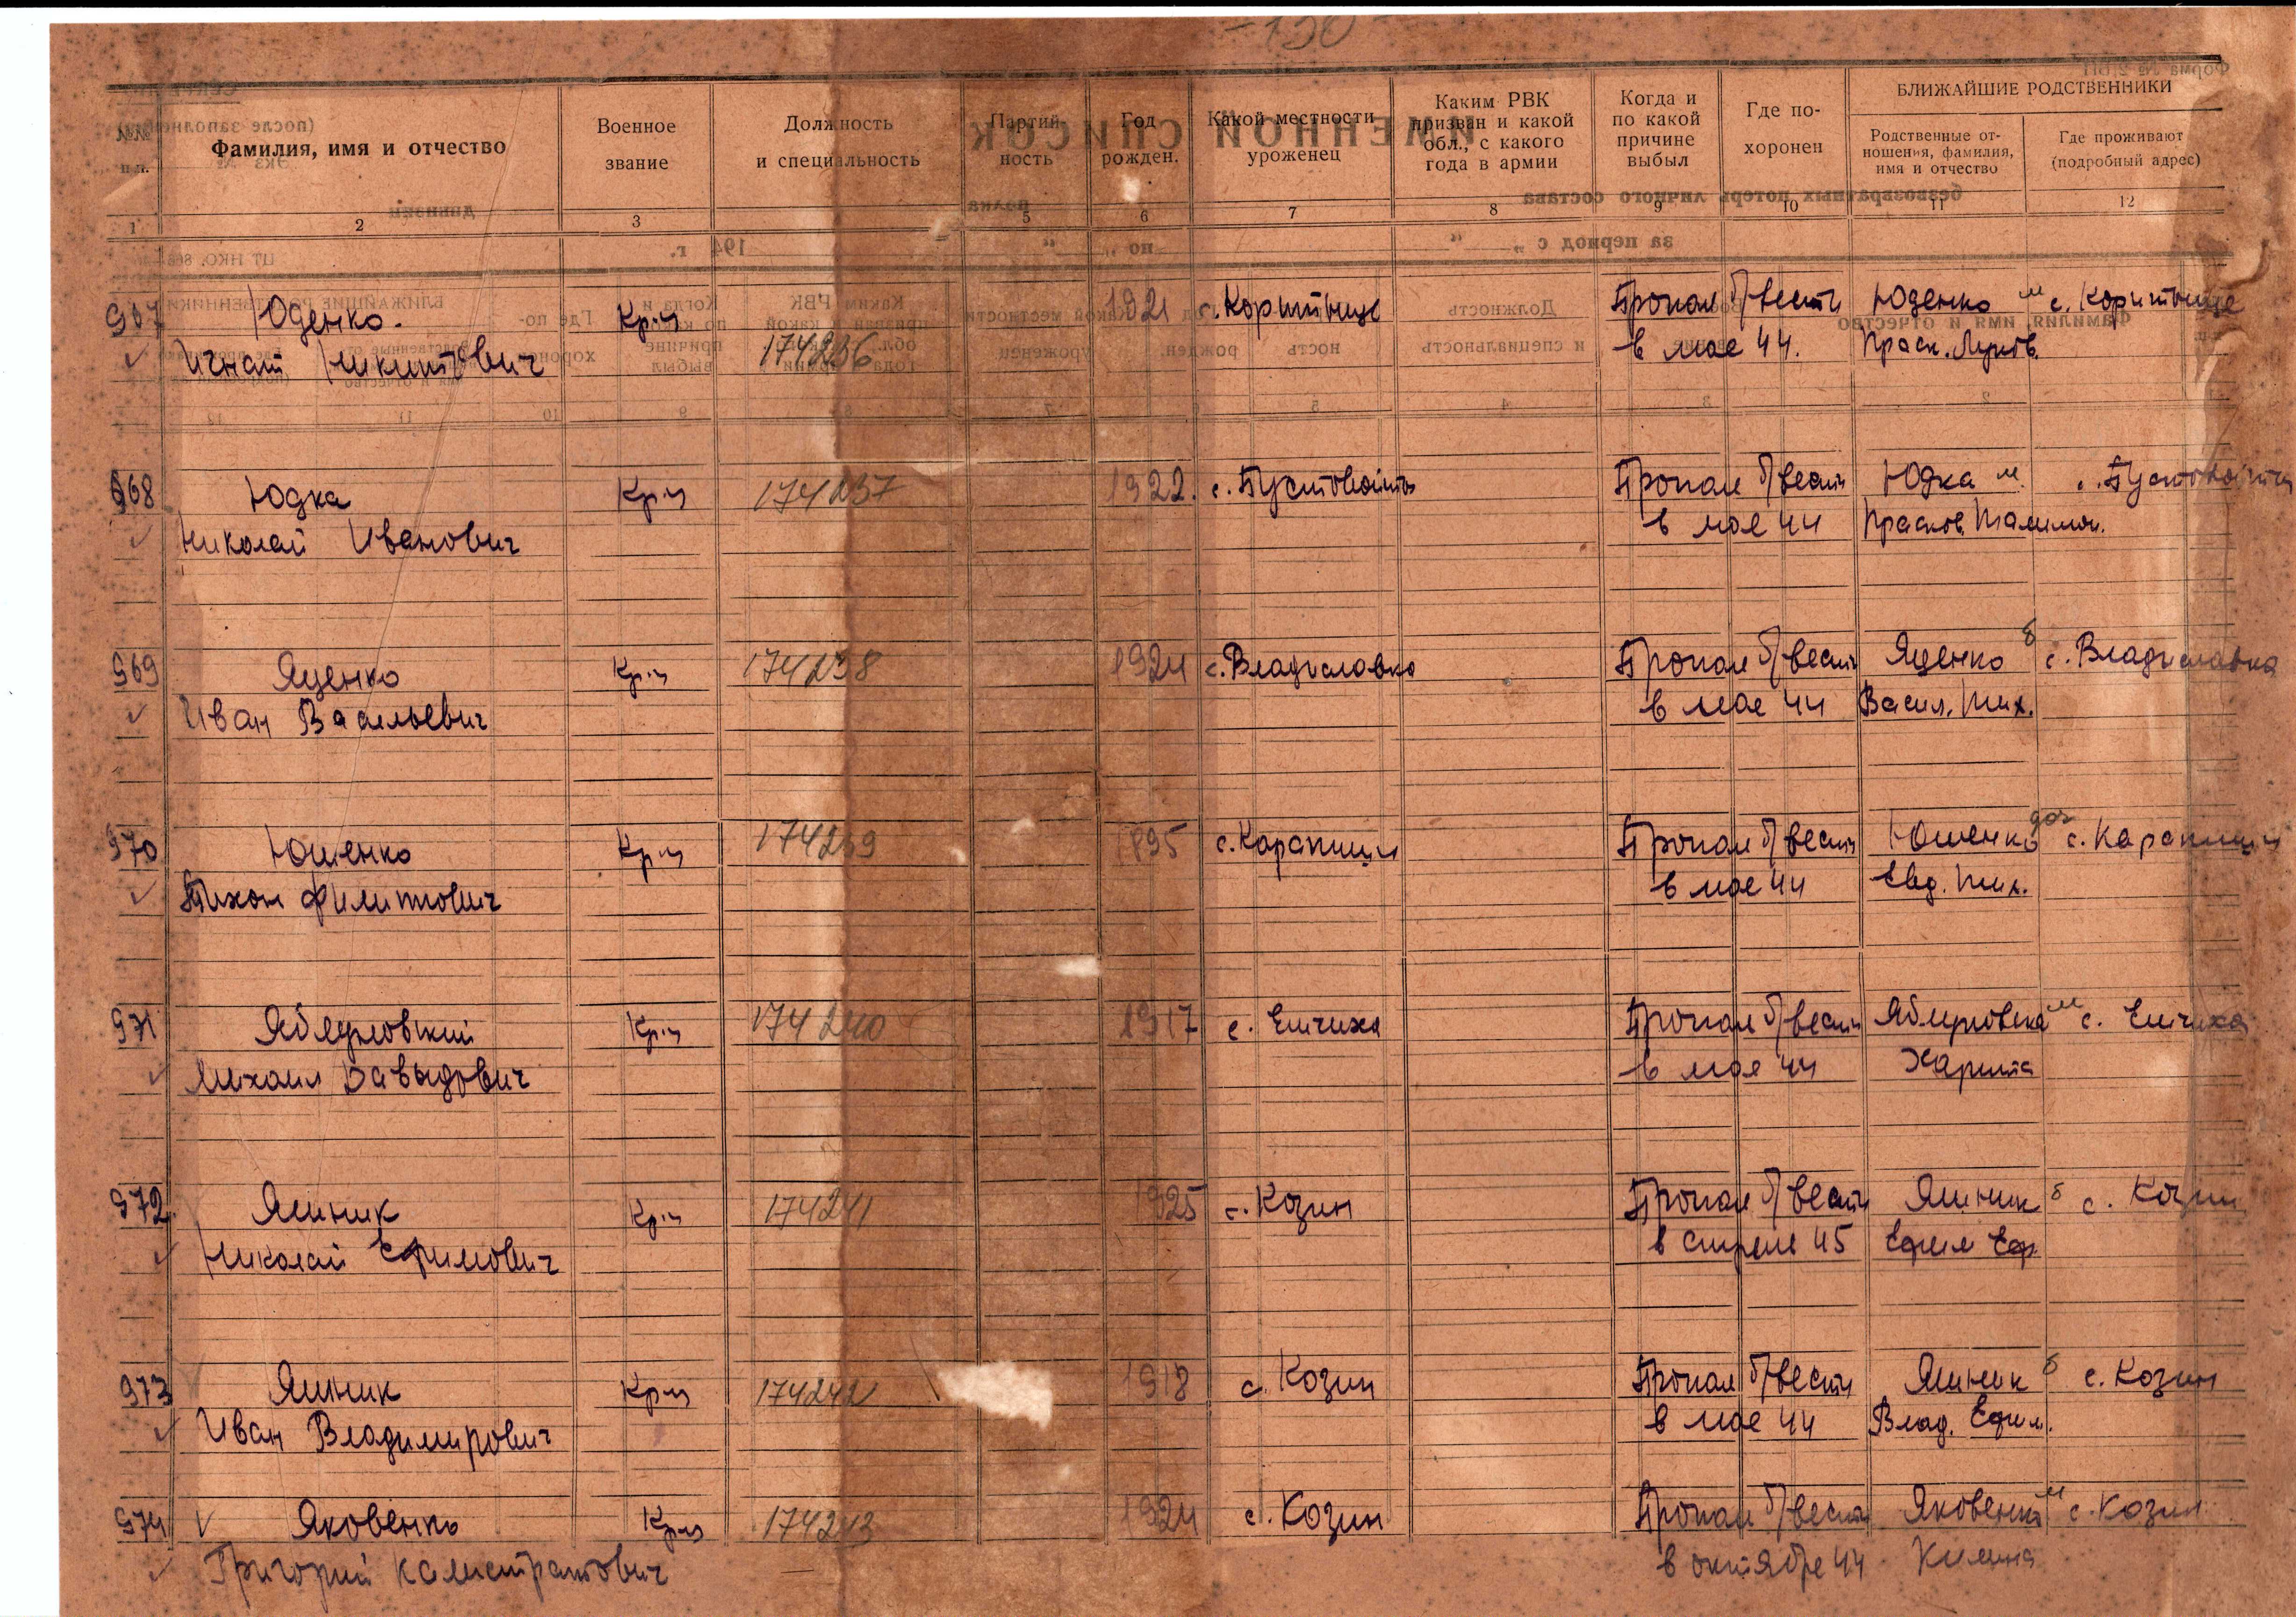 -130-
№№ п.п.
Фамилия, имя и отчество
Военное звание
Должность и специальность
Партий- ность
Год рожден.
Какой местности уроженец
Каким РВК призван и какой обл., с какого года в армии
Когда и по какой причине выбыл
Где по- хоронен
БЛИЖАЙШИЕ РОДСТВЕННИКИ
Родственные от- ношения, фамилия, имя и отчество
Где проживают (подробный адрес)
1 2 3 5 6 7 8 9 10 11 12
967 Юденко Кр-ц 1921 с. Коритище Пропал б/вести Юденко м с. Коритище
Игнат Никитович 174236 в мае 44. Праск. Луков.
968 Юдка Кр-ц 174237 1922. с. Пустовойты Пропал б/вести Юдка м. с. Пустовойты
Николай Иванович в мае 44 Прасков.
969 Яценко Кр-ц 174238 1924 с. Владиславка Пропал б/вести Яценко с. Владиславка
Иван Васильевич в мае 44 Васил. Тих.
970 Юшенко Кр-ц 174239 1895 с. Карапиши Пропал б/вести Юшенко доч с. Карапиши
Тихон Филиппович в мае 44 Евд. Тих.
971 Кр-ц 174240 1917 с. Емчиха Пропал б/вести м с. Емчиха
Михаил Давыдович в мае 44 Харита
972 Ямник Кр-ц 174241 1925 с. Козин Пропал б/вести Ямник б с. Козин
Николай Ефимович в апреле 45 Ефим Еф.
973 Ямник Кр-ц 174242 1918 с. Козин Пропал б/вести Ямник б с. Козин
Иван Владимирович в мае 44 Влад. Ефим.
974 Яковенко Кр-ц 174243 1924 с. Козин Пропал б/вести Яковенко м с. Козин
Григорий Калистратович в октябре 44 Килина